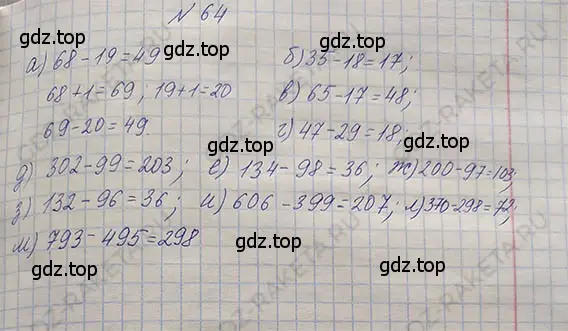 N 64
а) 68-19=49 б) 35-18=17;
68+1=69; 19+1=20 в) 65-17=48;
69-20=49 г) 47-29=18;
д) 302-99=203; е) 134-98=36; ж) 200-97=103;
з) 132-96=36; и) 606-399=207; л) 370-298=72;
м) 793-495=298
gdz.top
gdz.top
gdz.top
gdz.top
gdz.top
gdz.top
gdz.top
gdz.top
gdz.top
gdz.top
gdz.top
GDZ-RAKETA.RU